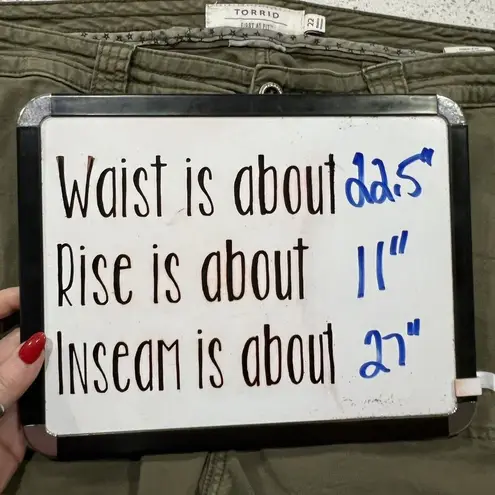 TORRID
22
Waist is about 22.5"
Rise is about 11"
Inseam is about 27"